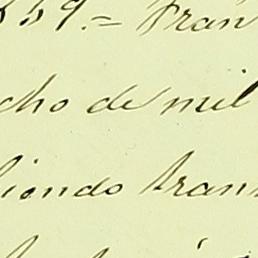 859.= Fran
cho de mil
iendo tran